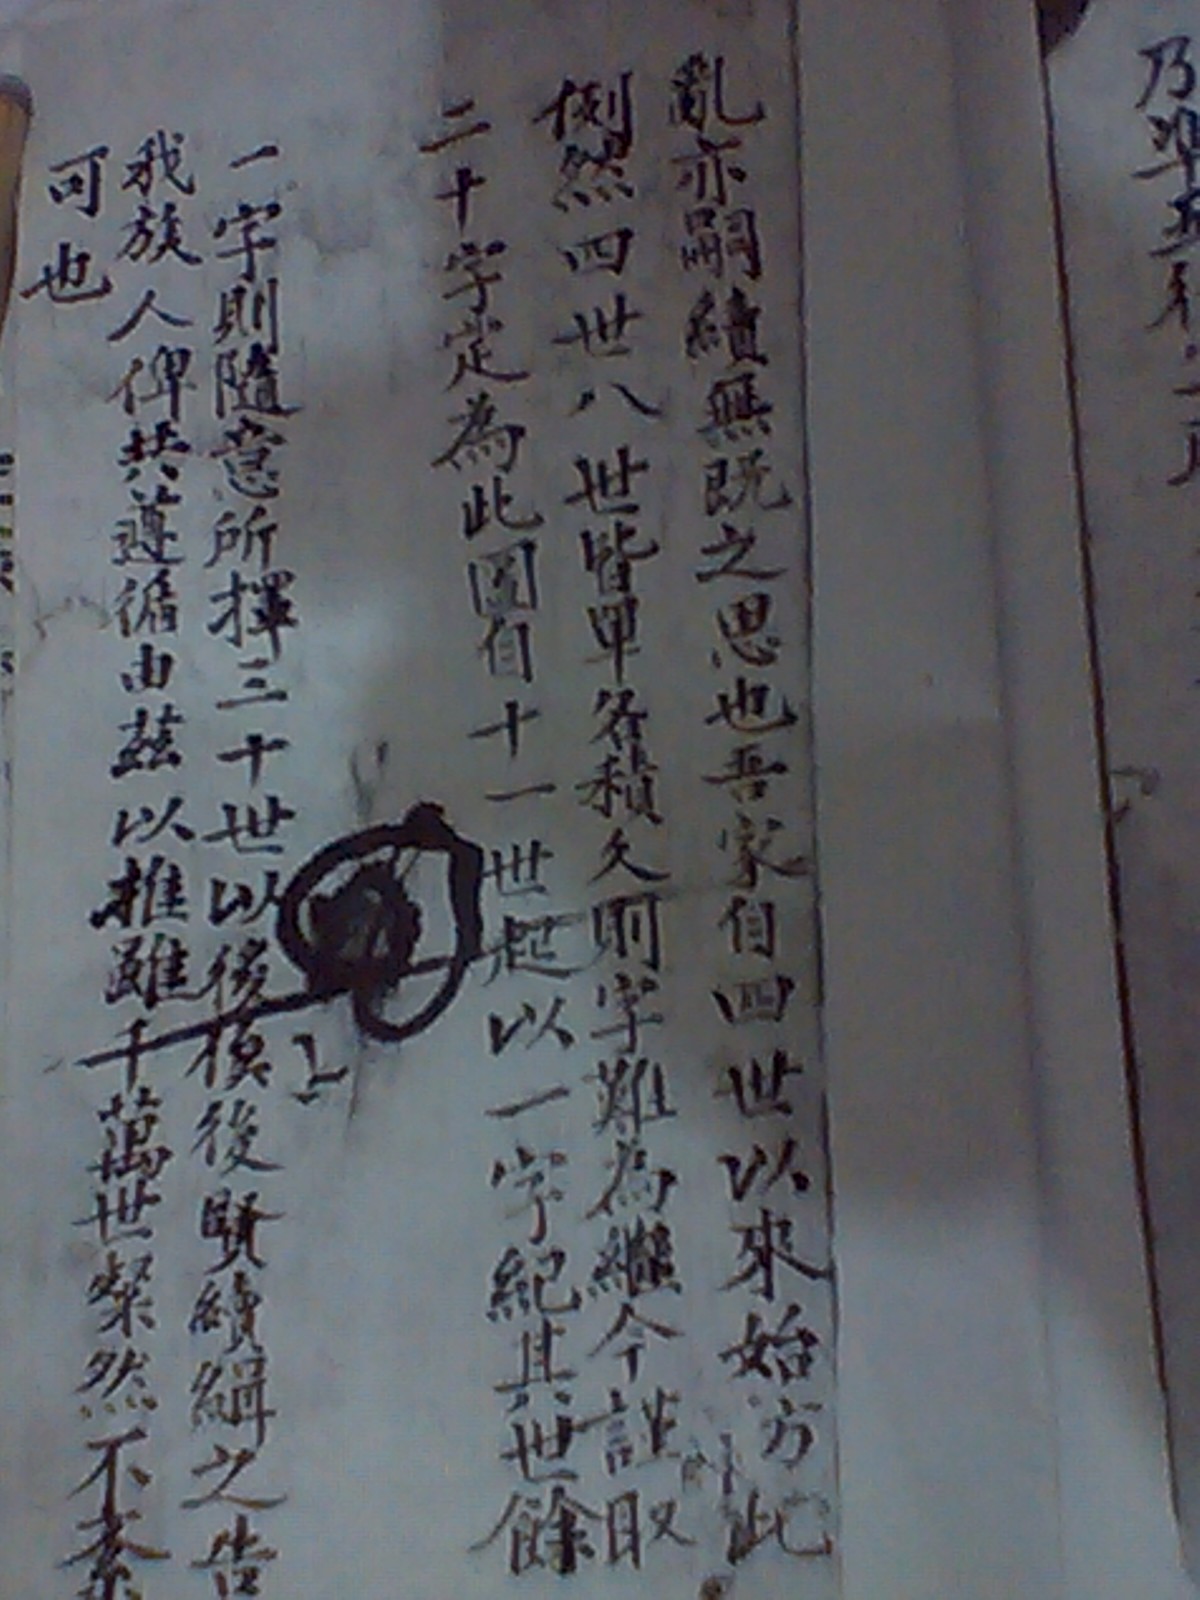 乃準五行
亂亦嗣續無既之思也吾家自四世以來始方此
例然四世八世皆單名積久則字難為繼今謹取
二十字定為此圖自十一世起以一字紀其世餘
一字則隨意所擇三十世以後模後賢續緝之告
我族人俾共遵循由茲以推雖千萬世粲然不紊
可也